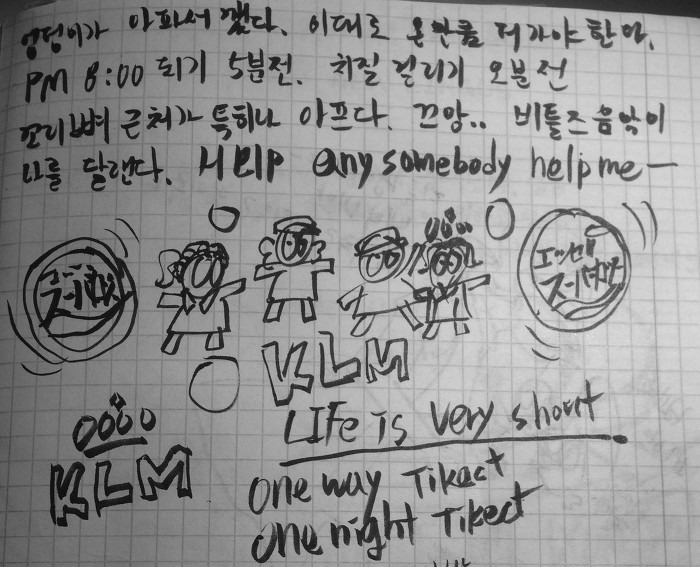 엉덩이가 아파서 깼다. 이대로 온 만큼 더 가야 한다.
PM 8:00 되기 5분전. 치질 걸리기 오분 전
꼬리뼈 근처가 특히나 아프다. 끄앙.. 비틀즈 음악이
나를 달랜다. HElP any somebody help me—
エッセル
スーパー
KLM
LIFe is very short
KLM
one way Tikact
one night Tikect